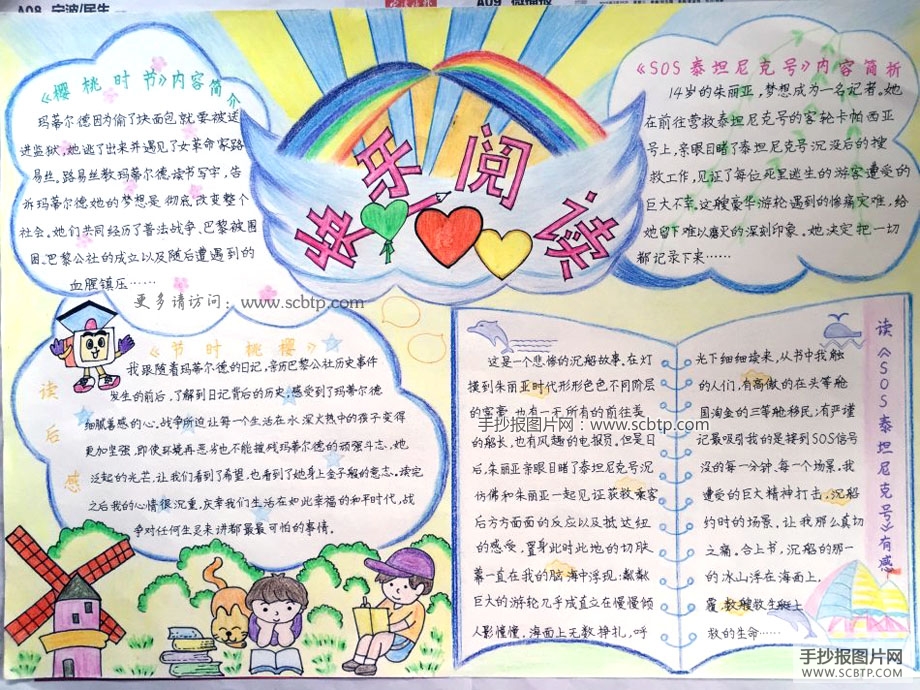 A08 宁波/民生
A09 微播报
快乐阅读
《樱桃时节》内容简介
玛蒂尔德因为偷了块面包就要被送
进监狱,她逃了出来并遇见了女革命家路
易丝。路易丝教玛蒂尔德读书写字,告
诉玛蒂尔德她的梦想是彻底改变整个
社会。她们共同经历了普法战争、巴黎被围
困、巴黎公社的成立以及随后遭遇到的
血腥镇压……
更多请访问:www.scbtp.com
《SOS泰坦尼克号》内容简析
14岁的朱丽亚,梦想成为一名记者。她
在前往营救泰坦尼克号的客轮卡帕西亚
号上,亲眼目睹了泰坦尼克号沉没后的搜
救工作,见证了每位死里逃生的游客遭受的
巨大不幸。这艘豪华游轮遇到的惨痛灾难,给
她留下难以磨灭的深刻印象。她决定把一切
都记录下来……
《节时桃樱》
读后感
我跟随着玛蒂尔德的日记,亲历巴黎公社历史事件
发生的前后,了解到日记背后的历史,感受到了玛蒂尔德
细腻善感的心。战争所迫让每一个生活在水深火热中的孩子变得
更加坚强,即使环境再恶劣也不能摧残玛蒂尔德的顽强斗志,她
泛起的光芒,让我们看到了希望,也看到了她身上金子般的意志。读完
之后我的心情很沉重,庆幸我们生活在如此幸福的和平时代,战
争对任何生灵来讲都最最可怕的事情。
这是一个悲惨的沉船故事。在灯
摸到朱丽亚时代形形色色不同阶层
的客童,也有一无所有的前往美
的船长,也有风趣的电报员。但是日
后,朱丽亚亲眼目睹了泰坦尼克号沉
仿佛和朱丽亚一起见证获救乘客
后方方面面的反应以及抵达纽
的感受,置身此时此地的切肤
幕一直在我的脑海中浮现:粼粼
巨大的游轮几乎成直立在慢慢倾
人影憧憧,海面上无数挣扎,呼
手抄报图片网:www.scbtp.com
光下细细读来,从书中我触
的人们,有高傲的在头等舱
国淘金的三等舱移民;有严谨
记最吸引我的是接到SOS信号
没的每一分钟,每一个场景。我
遭受的巨大精神打击,沉船
约时的场景,让我那么真切
之痛。合上书,沉船的那一
的冰山浮在海面上,
救的生命……
读《SOS泰坦尼克号》有感
手抄报图片网
WWW.SCBTP.COM